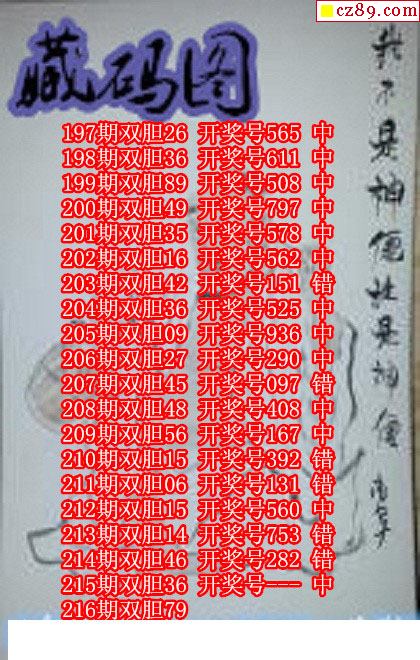 cz89.com
藏码图
197期双胆26 开奖号565 中
198期双胆36 开奖号611 中
199期双胆89 开奖号508 中
200期双胆49 开奖号797 中
201期双胆35 开奖号578 中
202期双胆16 开奖号562 中
203期双胆42 开奖号151 错
204期双胆36 开奖号525 中
205期双胆09 开奖号936 中
206期双胆27 开奖号290 中
207期双胆45 开奖号097 错
208期双胆48 开奖号408 中
209期双胆56 开奖号167 中
210期双胆15 开奖号392 错
211期双胆06 开奖号131 错
212期双胆15 开奖号560 中
213期双胆14 开奖号753 错
214期双胆46 开奖号282 错
215期双胆36 开奖号--- 中
216期双胆79
我不是神仙但是神仙